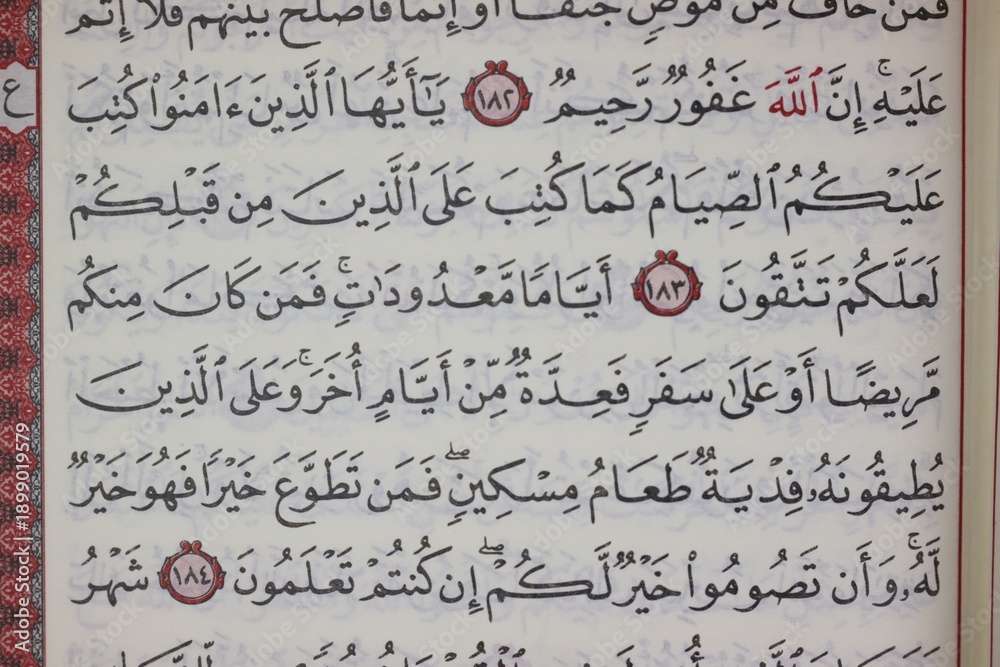 فَمَنْ خَافَ مِن مُّوصٍ جَنَفًا أَوْ إِثْمًا فَأَصْلَحَ بَيْنَهُمْ فَلَآ إِثْمَ
عَلَيْهِ ۚ إِنَّ ٱللَّهَ غَفُورٌ رَّحِيمٌ ١٨٢ يَـٰٓأَيُّهَا ٱلَّذِينَ ءَامَنُوا۟ كُتِبَ
عَلَيْكُمُ ٱلصِّيَامُ كَمَا كُتِبَ عَلَى ٱلَّذِينَ مِن قَبْلِكُمْ
لَعَلَّكُمْ تَتَّقُونَ ١٨٣ أَيَّامًا مَّعْدُودَٰتٍ ۚ فَمَن كَانَ مِنكُم
مَّرِيضًا أَوْ عَلَىٰ سَفَرٍ فَعِدَّةٌ مِّنْ أَيَّامٍ أُخَرَ ۚ وَعَلَى ٱلَّذِينَ
يُطِيقُونَهُۥ فِدْيَةٌ طَعَامُ مِسْكِينٍ ۖ فَمَن تَطَوَّعَ خَيْرًا فَهُوَ خَيْرٌ
لَّهُۥ ۚ وَأَن تَصُومُوا۟ خَيْرٌ لَّكُمْ ۖ إِن كُنتُمْ تَعْلَمُونَ ١٨٤ شَهْرُ
ع
Adobe Stock | #1899019579